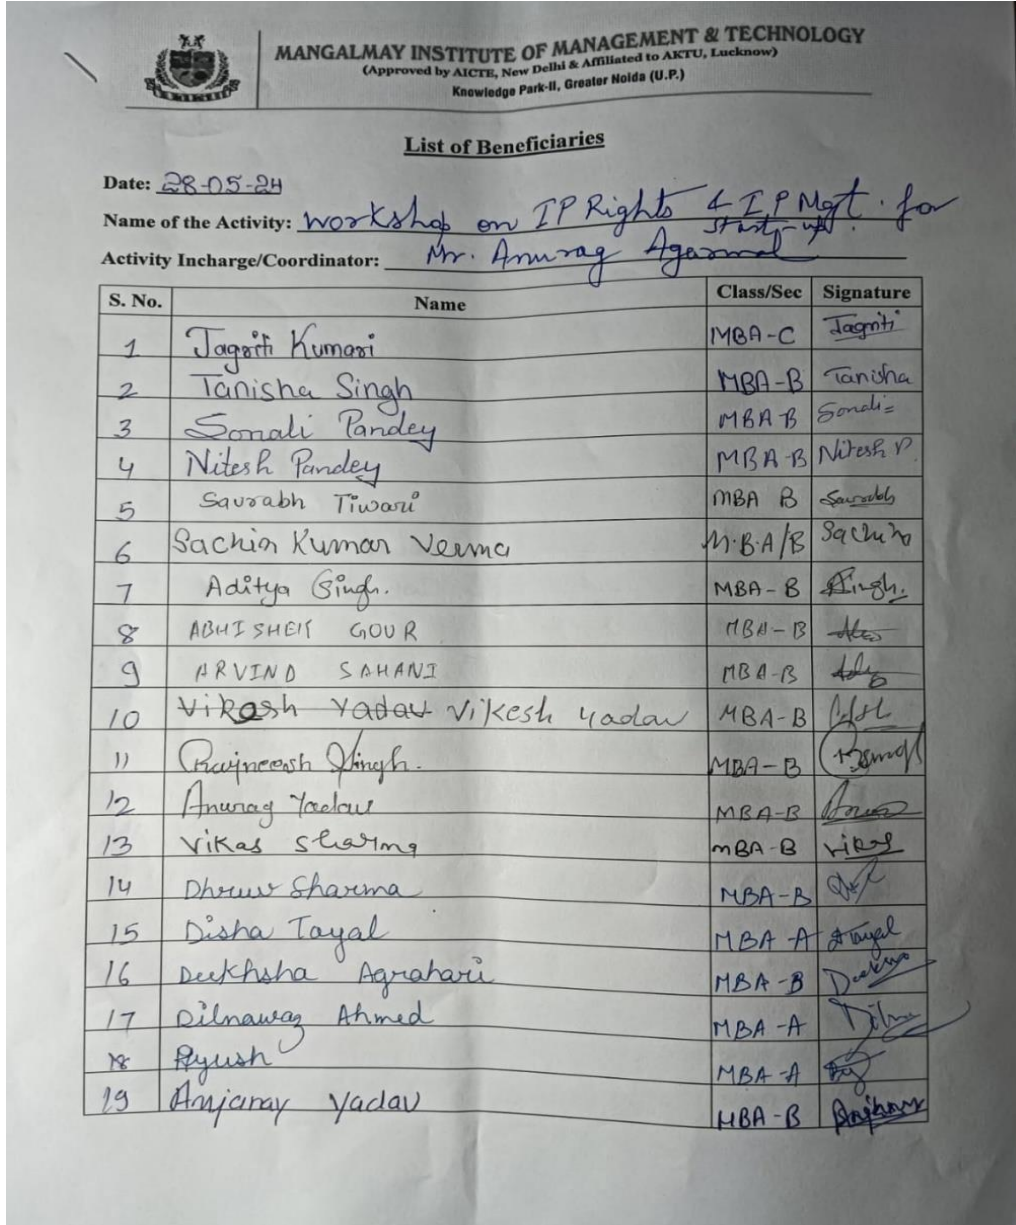 MANGALMAY INSTITUTE OF MANAGEMENT & TECHNOLOGY
(Approved by AICTE, New Delhi & Affiliated to AKTU, Lucknow)
Knowledge Park-II, Greater Noida (U.P.)
List of Beneficiaries
Date: 28-05-24
Name of the Activity: Workshop on IP Rights & I.P Mgt. for
Start-up
Activity Incharge/Coordinator: Mr. Anurag Agarwal
S. No. Name Class/Sec Signature
1 Jagriti Kumari MBA-C Jagriti
2 Tanisha Singh MBA-B Tanisha
3 Sonali Pandey MBA B Sonali
4 Nitesh Pandey MBA-B Nitesh P.
5 Saurabh Tiwari MBA B Saurabh
6 Sachin Kumar Verma M.B.A/B Sachin
7 Aditya Singh. MBA-B Singh.
8 ABHISHEK GOUR MBA-B
9 ARVIND SAHANI MBA-B
10 Vikash Yadav Vikesh yadav MBA-B
11 Rajneesh Singh. MBA-B
12 Anurag Yadav MBA-B
13 Vikas Sharma MBA-B Vikas
14 Dhruv Sharma MBA-B
15 Disha Tayal MBA-A Tayal
16 Deekhsha Agrahari MBA-B
17 Dilnawaz Ahmed MBA-A
18 Ayush MBA-A
19 Anjanay Yadav MBA-B